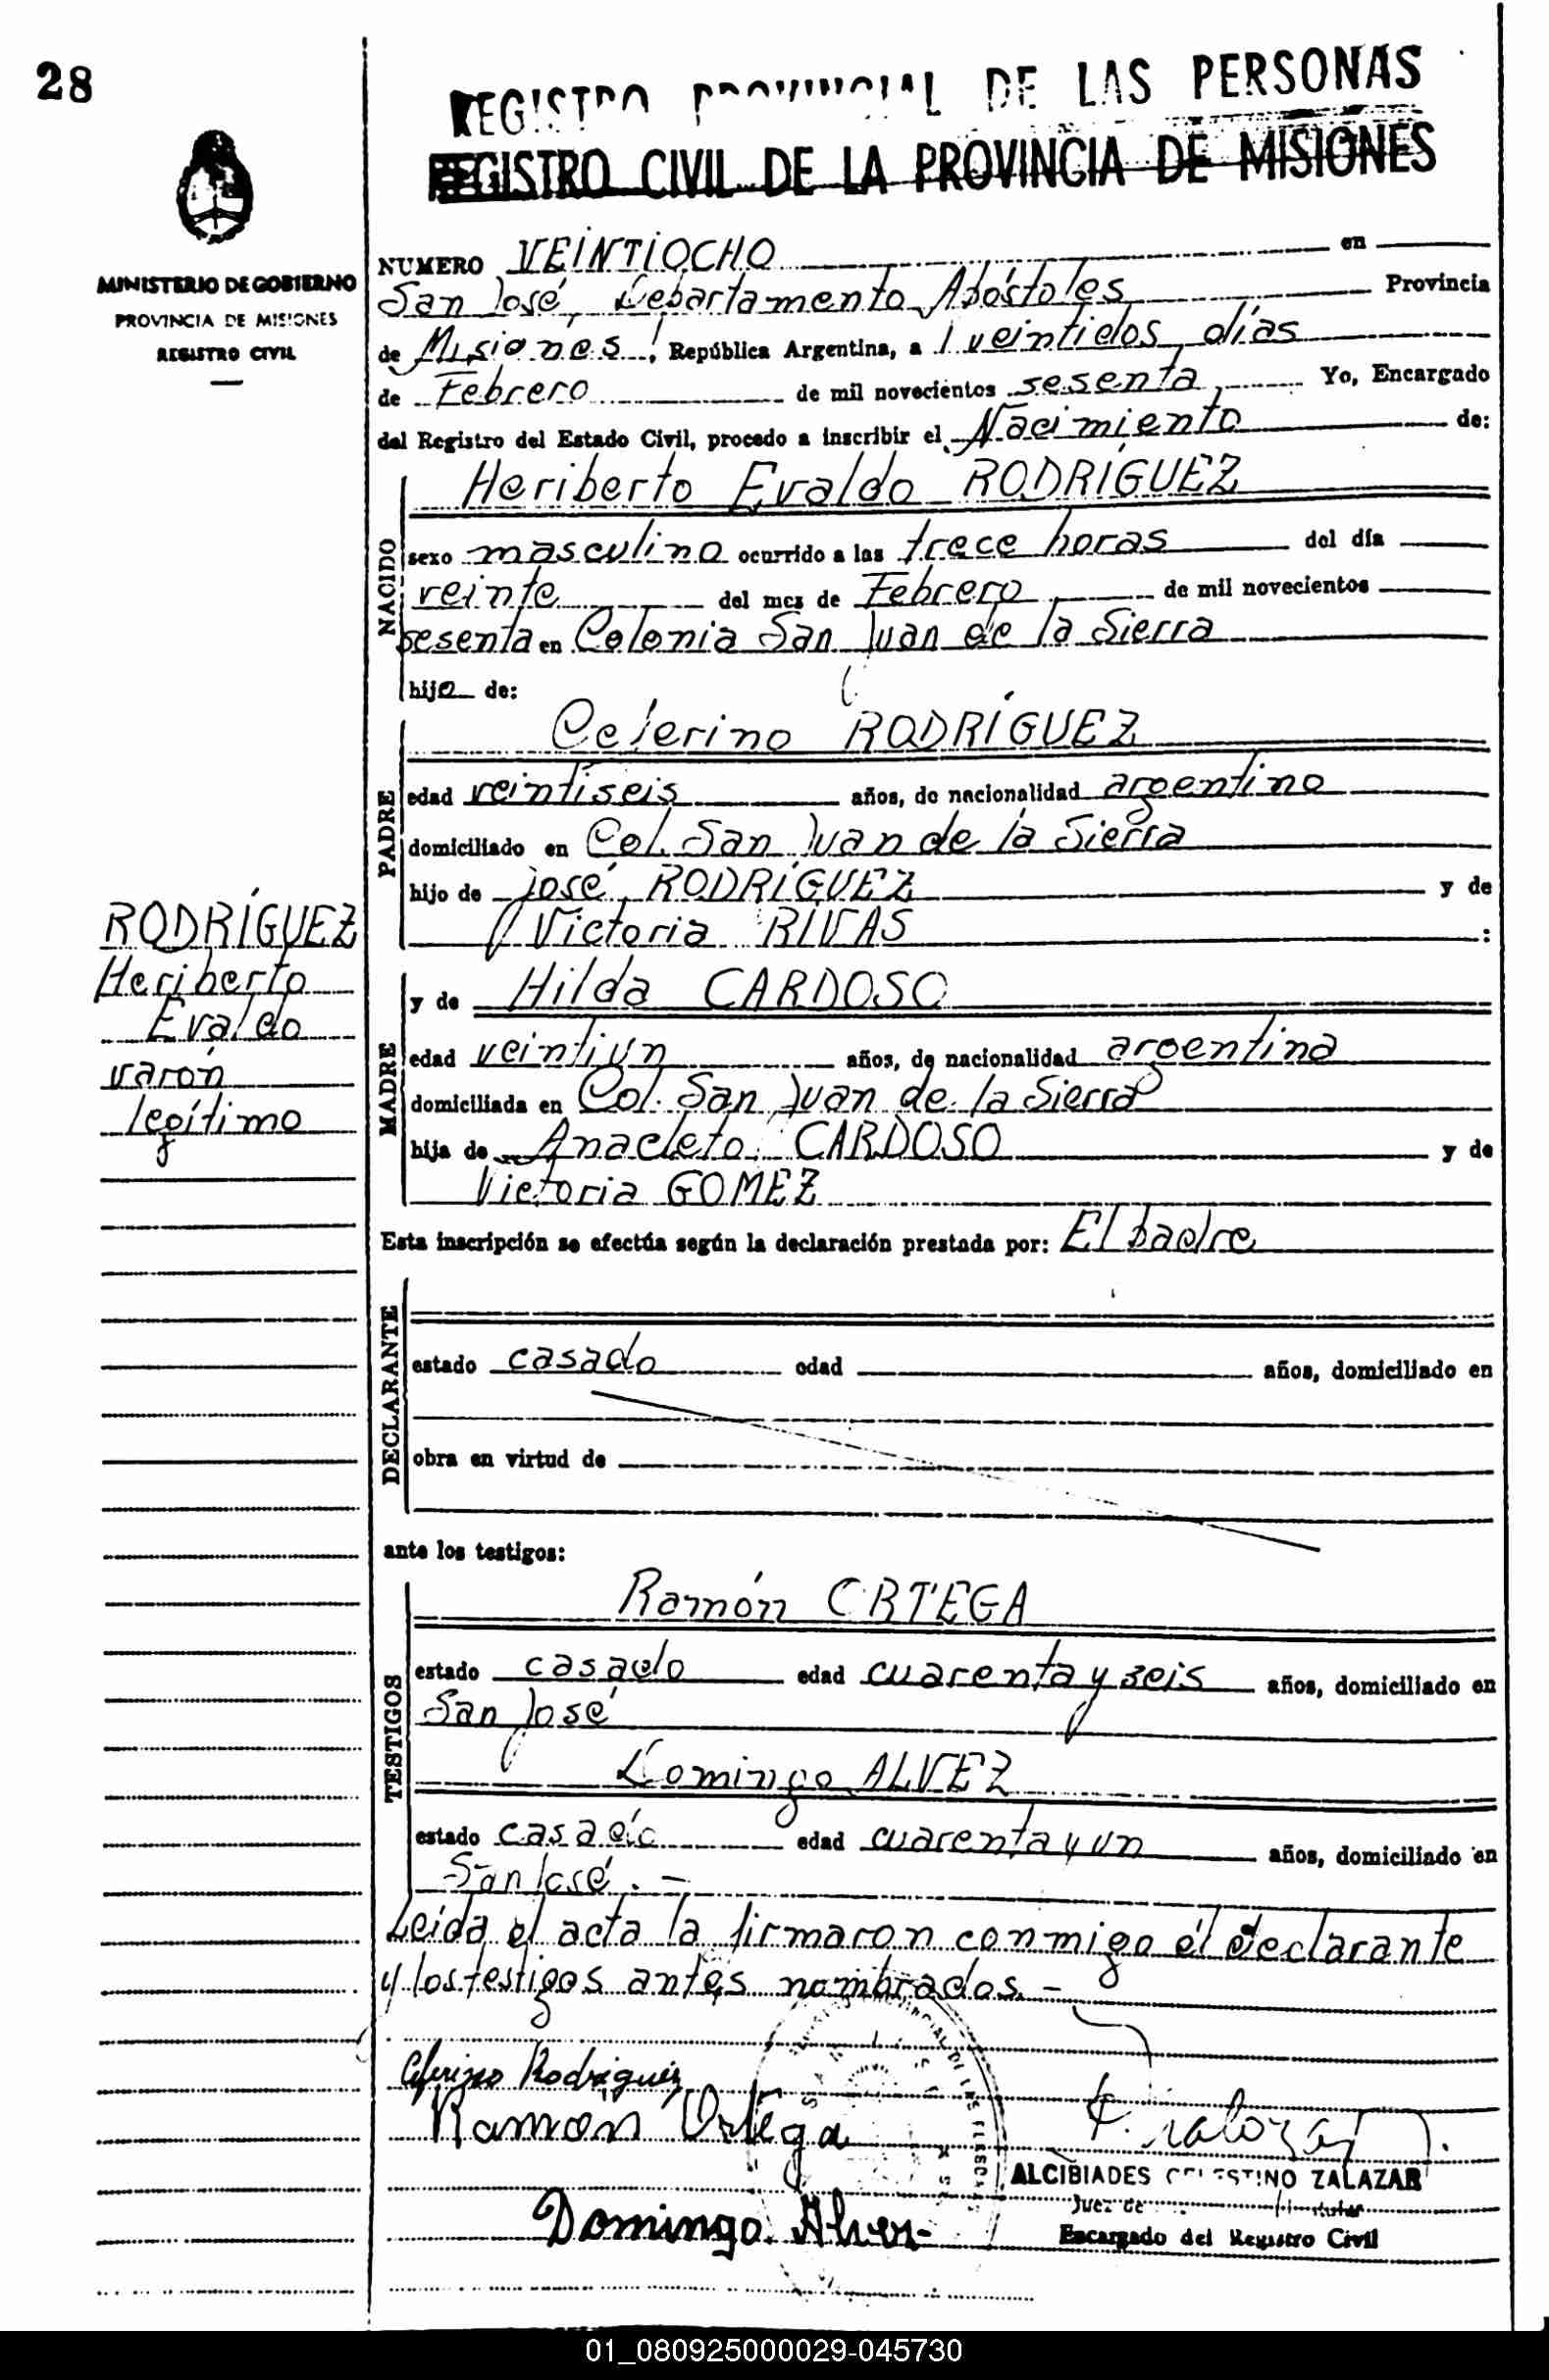 28
REGISTRO PROVINCIAL DE LAS PERSONAS
REGISTRO CIVIL DE LA PROVINCIA DE MISIONES
MINISTERIO DE GOBIERNO
PROVINCIA DE MISIONES
REGISTRO CIVIL
NUMERO VEINTIOCHO en
San José, Departamento Apóstoles Provincia
de Misiones, República Argentina, a veintidos días
de Febrero de mil novecientos sesenta, Yo, Encargado
del Registro del Estado Civil, procedo a inscribir el Nacimiento de:
NACIDO
Heriberto Evaldo RODRÍGUEZ
sexo masculino ocurrido a las trece horas del día
veinte del mes de Febrero de mil novecientos
sesenta en Colonia San Juan de la Sierra
hijo de:
PADRE
Ceferino RODRÍGUEZ
edad veintiseis años, de nacionalidad argentino
domiciliado en Col. San Juan de la Sierra
hijo de José RODRÍGUEZ y de
Victoria RIVAS :
RODRÍGUEZ
Heriberto
Evaldo
varón
legítimo
MADRE
y de Hilda CARDOSO
edad veintiun años, de nacionalidad argentina
domiciliada en Col. San Juan de la Sierra
hija de Anacleto CARDOSO y de
Victoria GOMEZ
Esta inscripción se efectúa según la declaración prestada por: El padre
DECLARANTE
estado casado edad años, domiciliado en
obra en virtud de
ante los testigos:
TESTIGOS
Ramón ORTEGA
estado casado edad cuarenta y seis años, domiciliado en
San José
Domingo ALVEZ
estado casado edad cuarenta y un años, domiciliado en
San José.-
Leida el acta la firmaron conmigo el declarante
y los testigos antes nombrados.-
Ceferino Rodriguez
Ramon Ortega
ALCIBIADES CELESTINO ZALAZAR
Juez de
Domingo Alvez
Encargado del Registro Civil
01_080925000029-045730